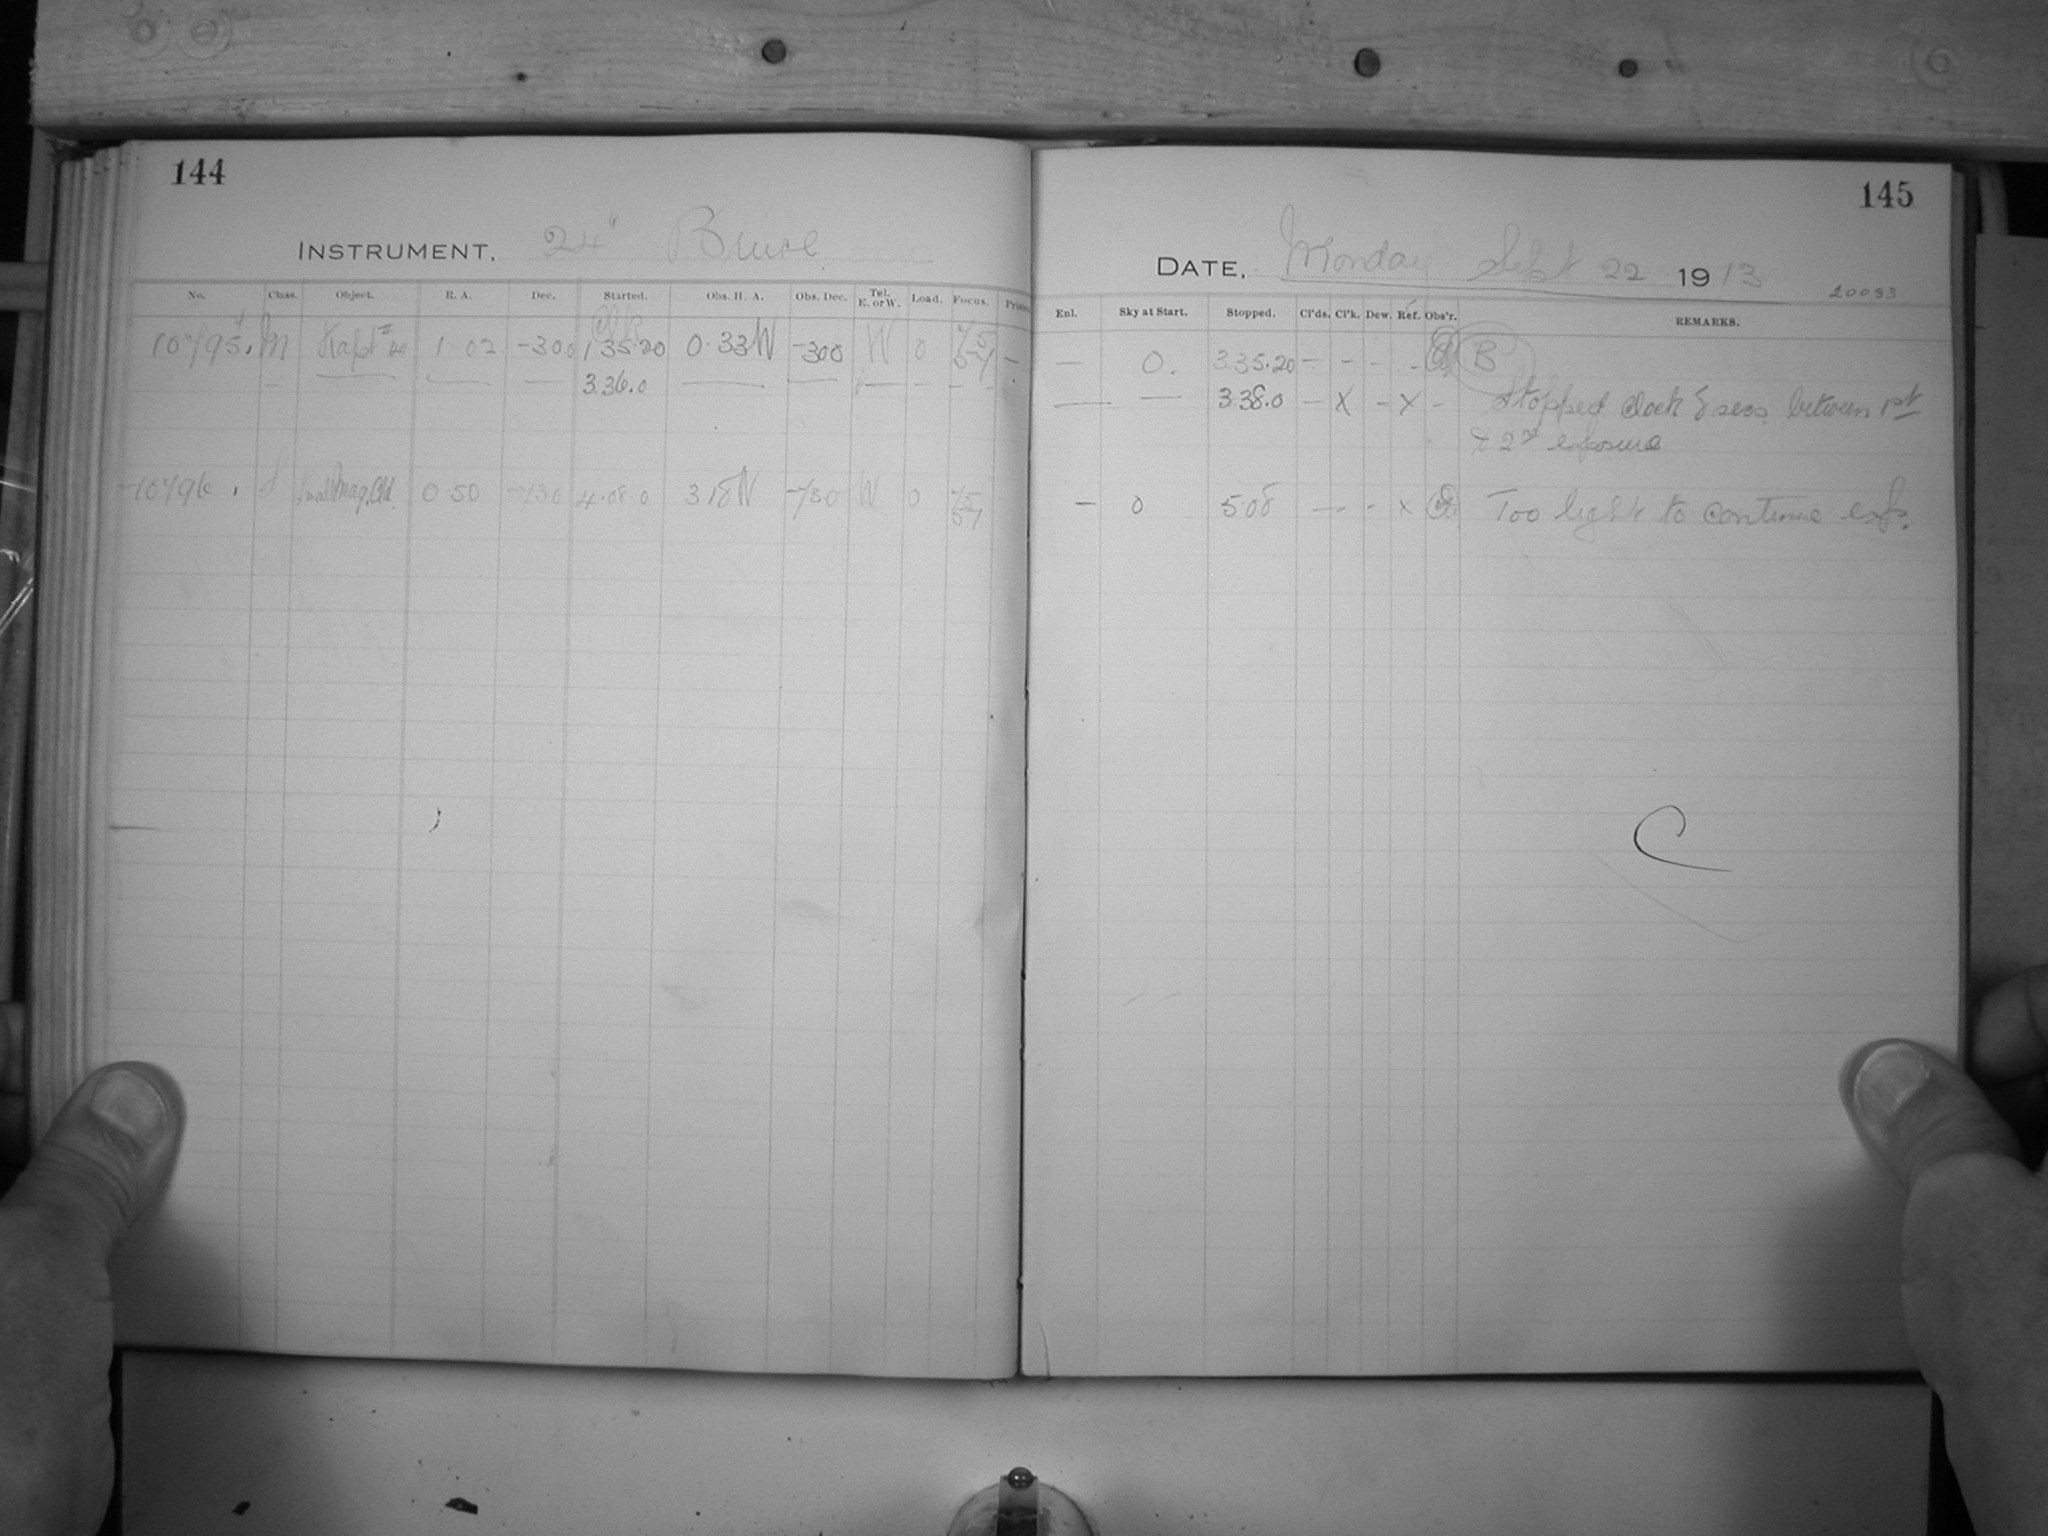 144
INSTRUMENT. 24" Bruce
No. Class. Object. R. A. Dec. Started. Obs. H. A. Obs. Dec. Tel. E. or W. Load. Focus.
10795. M Kapt 1 02 -300 1 35.20 0.33W -300 W 0 —
— — — — 3.36.0 — — — — —
10796. S Small Mag. Cld. 0 50 -730 4.08.0 3 18W -730 W 0
145
DATE, Monday Sept 22 1913
20033
Enl. Sky at Start. Stopped. Cl'ds. Cl'k. Dew. Ref. Obs'r. REMARKS.
— 0. 3.35.20 – – – – B
— — 3.38.0 – X – X – Stopped clock 8 secs between 1st
& 2nd exposure
— 0 5.08 – – – X Too light to continue exp.
C